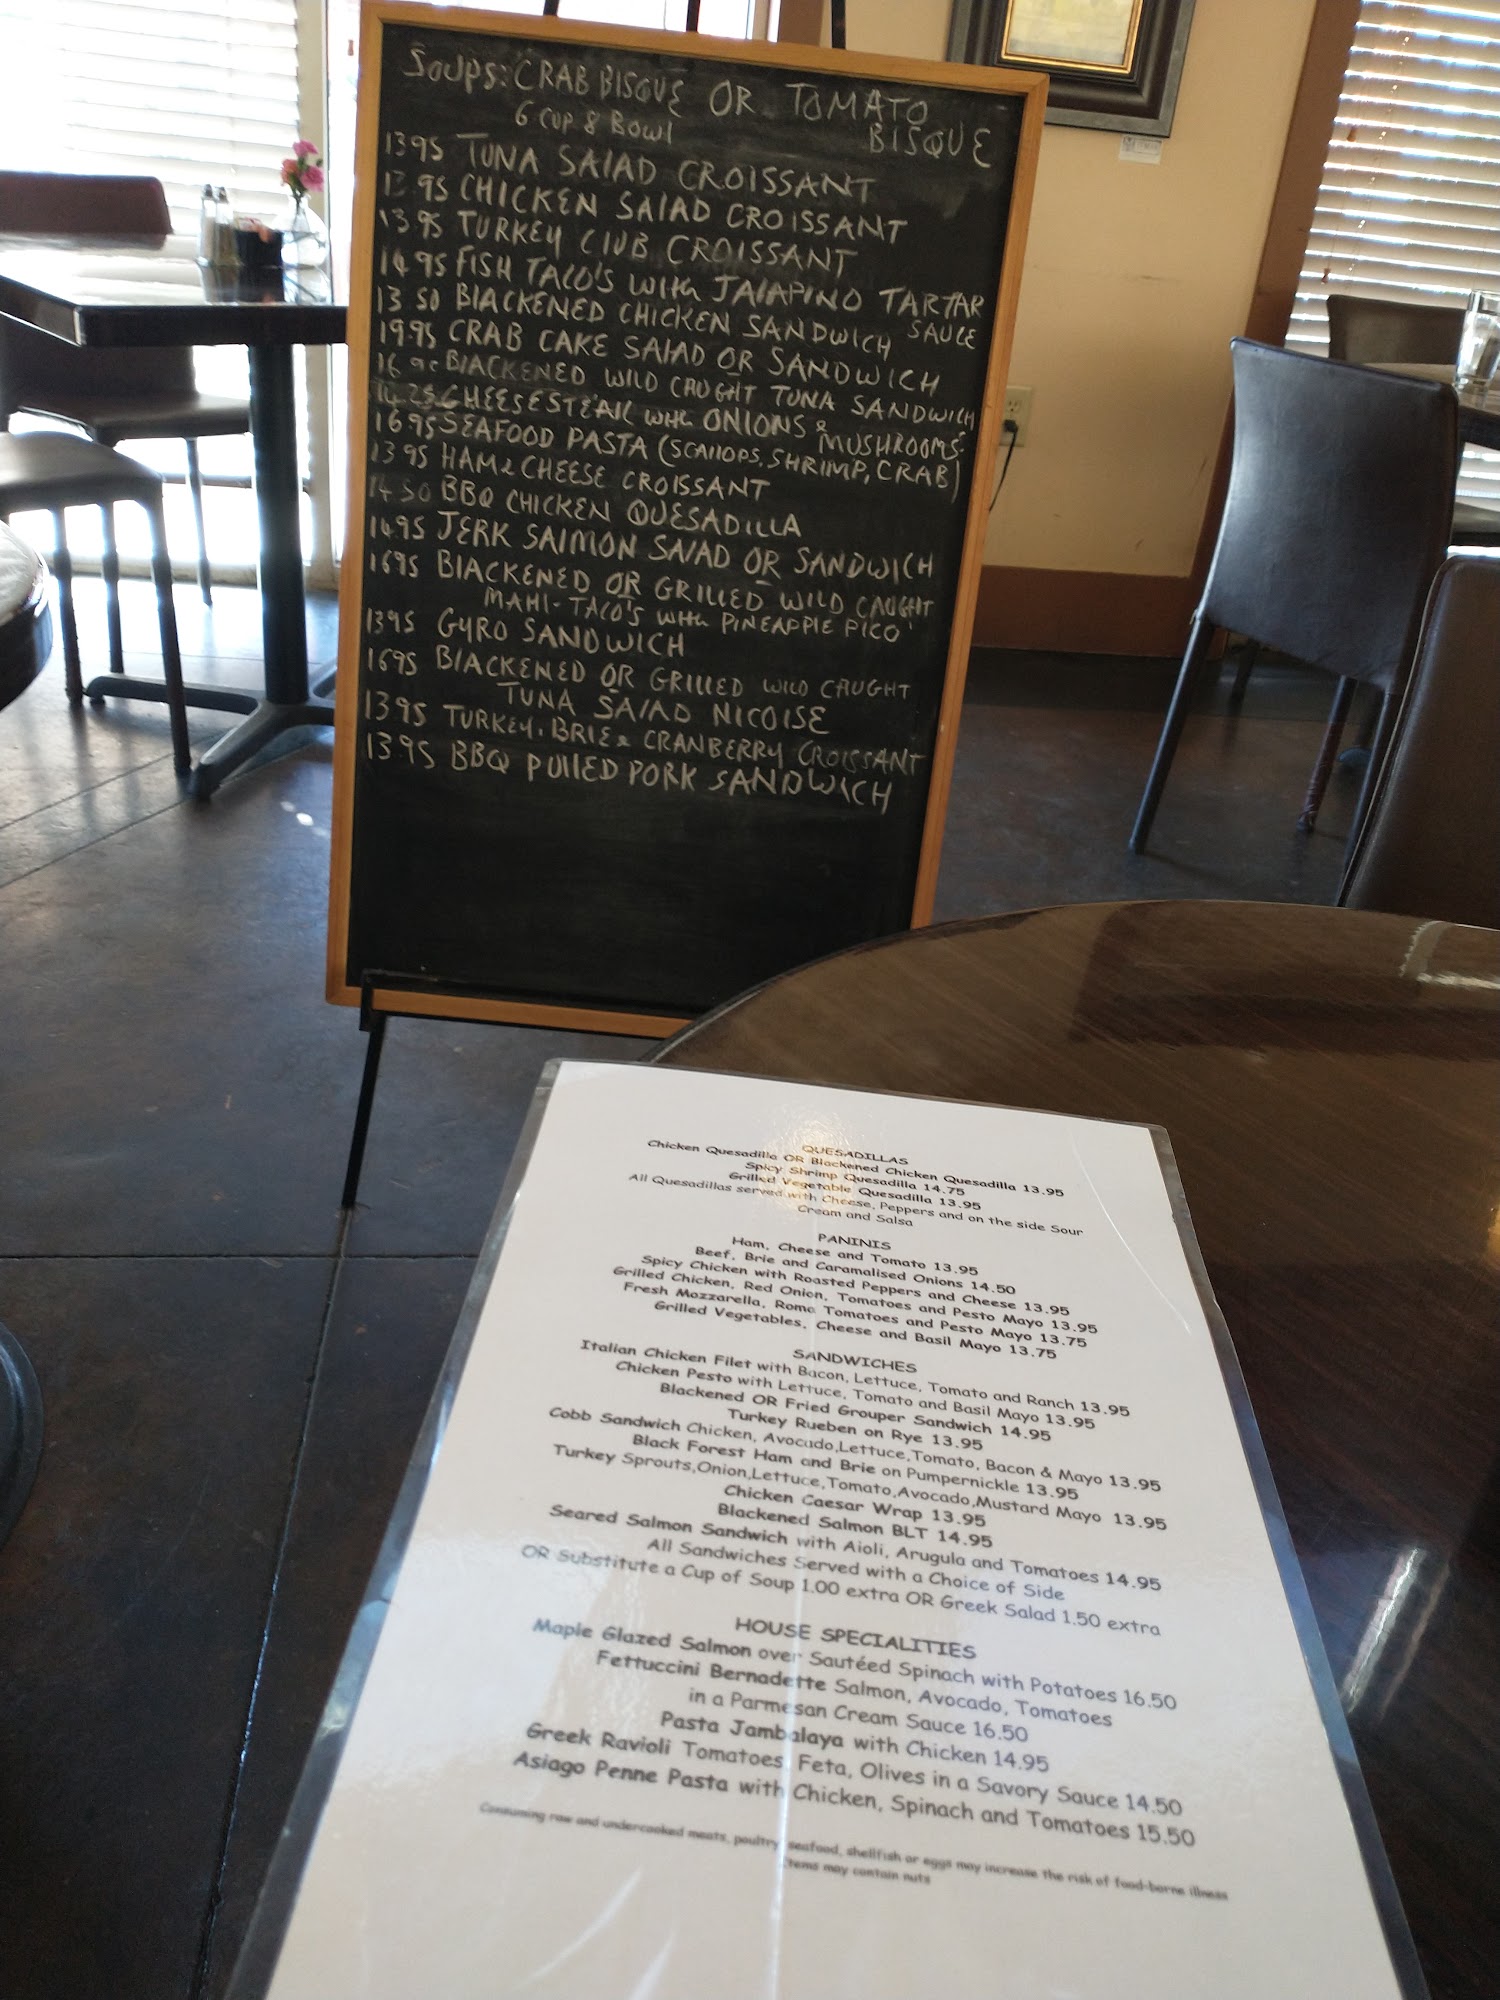 SOUPS: CRAB BISQUE OR TOMATO BISQUE
6 CUP 8 BOWL
1395 TUNA SALAD CROISSANT
13.95 CHICKEN SALAD CROISSANT
13.95 TURKEY CLUB CROISSANT
14.95 FISH TACO'S WITH JALAPINO TARTAR SAUCE
13 50 BLACKENED CHICKEN SANDWICH
19.95 CRAB CAKE SALAD OR SANDWICH
16 BLACKENED WILD CAUGHT TUNA SANDWICH
CHEESESTEAK WITH ONIONS & MUSHROOMS
1695 SEAFOOD PASTA (SCALLOPS, SHRIMP, CRAB)
1395 HAM & CHEESE CROISSANT
14 50 BBQ CHICKEN QUESADILLA
14.95 JERK SALMON SALAD OR SANDWICH
1695 BLACKENED OR GRILLED WILD CAUGHT
MAHI-TACO'S WITH PINEAPPLE PICO
1395 GYRO SANDWICH
1695 BLACKENED OR GRILLED WILD CAUGHT
TUNA SALAD NICOISE
1395 TURKEY, BRIE & CRANBERRY CROISSANT
13.95 BBQ PULLED PORK SANDWICH
QUESADILLAS
Chicken Quesadilla OR Blackened Chicken Quesadilla 13.95
Spicy Shrimp Quesadilla 14.75
Grilled Vegetable Quesadilla 13.95
All Quesadillas served with Cheese, Peppers and on the side Sour
Cream and Salsa
PANINIS
Ham, Cheese and Tomato 13.95
Beef, Brie and Caramalised Onions 14.50
Spicy Chicken with Roasted Peppers and Cheese 13.95
Grilled Chicken, Red Onion, Tomatoes and Pesto Mayo 13.95
Fresh Mozzarella, Roma Tomatoes and Pesto Mayo 13.75
Grilled Vegetables, Cheese and Basil Mayo 13.75
SANDWICHES
Italian Chicken Filet with Bacon, Lettuce, Tomato and Ranch 13.95
Chicken Pesto with Lettuce, Tomato and Basil Mayo 13.95
Blackened OR Fried Grouper Sandwich 14.95
Turkey Rueben on Rye 13.95
Cobb Sandwich Chicken, Avocado,Lettuce,Tomato, Bacon & Mayo 13.95
Black Forest Ham and Brie on Pumpernickle 13.95
Turkey Sprouts,Onion,Lettuce,Tomato,Avocado,Mustard Mayo 13.95
Chicken Caesar Wrap 13.95
Blackened Salmon BLT 14.95
Seared Salmon Sandwich with Aioli, Arugula and Tomatoes 14.95
All Sandwiches Served with a Choice of Side
OR Substitute a Cup of Soup 1.00 extra OR Greek Salad 1.50 extra
HOUSE SPECIALITIES
Maple Glazed Salmon over Sautéed Spinach with Potatoes 16.50
Fettuccini Bernadette Salmon, Avocado, Tomatoes
in a Parmesan Cream Sauce 16.50
Pasta Jambalaya with Chicken 14.95
Greek Ravioli Tomatoes, Feta, Olives in a Savory Sauce 14.50
Asiago Penne Pasta with Chicken, Spinach and Tomatoes 15.50
Consuming raw and undercooked meats, poultry, seafood, shellfish or eggs may increase the risk of food-borne illness
Items may contain nuts